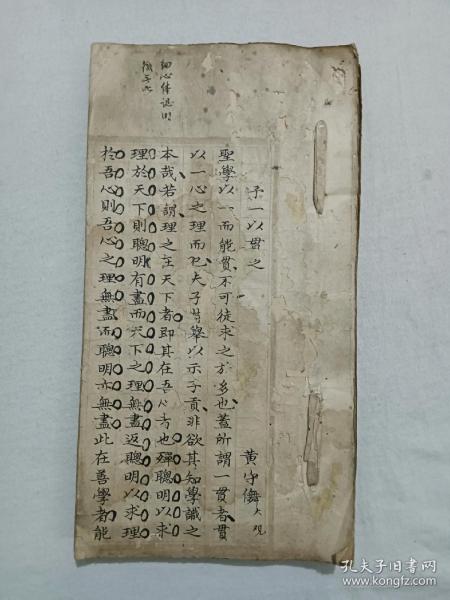 予一以貫之
黄守儀 大观
聖學以一而能貫不可徒求之於多也蓋所謂一貫者貫
以一心之理而已夫子特舉以示子貢非欲其知學識之
本哉若謂理之在天下者即其在吾心者也殫聰明以求
理於天下則聰明有盡而天下之理無盡返聰明以求理
於吾心則吾心之理無盡而聰明亦無盡此在善學者能
細心体認明
孔夫子旧书网
www.kongfz.com